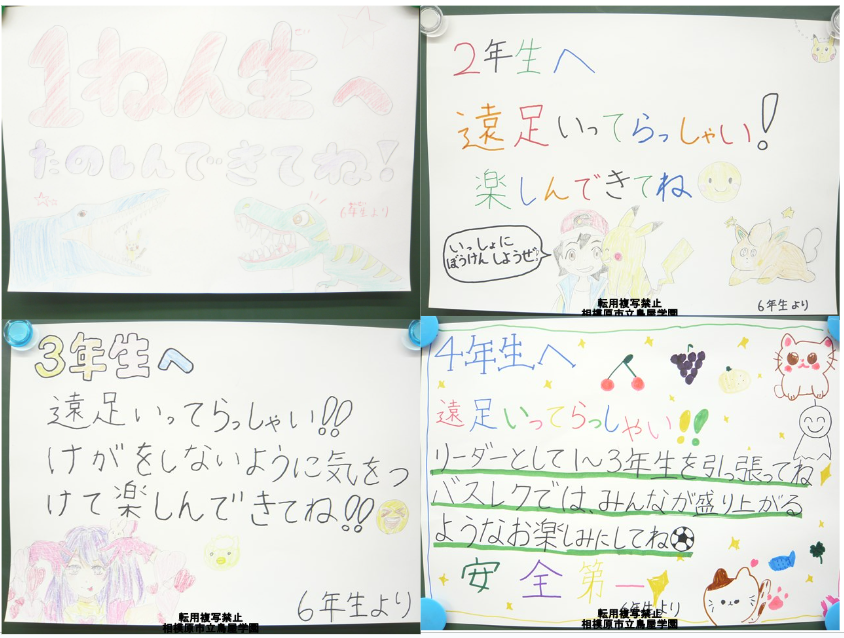 1ねん生へ
たのしんできてね!
6年生より
2年生へ
遠足いってらっしゃい!
楽しんできてね
いっしょに
ぼうけんしようぜ!
6年生より
転用複写禁止
相模原市立鳥屋学園
3年生へ
遠足いってらっしゃい!!
けがをしないように気をつ
けて楽しんできてね!!
6年生より
転用複写禁止
相模原市立鳥屋学園
4年生へ
遠足いってらっしゃい!!
リーダーとして1〜3年生を引っ張ってね
バスレクでは、みんなが盛り上がる
ようなお楽しみにしてね
安全第一
6年生より
転用複写禁止
相模原市立鳥屋学園